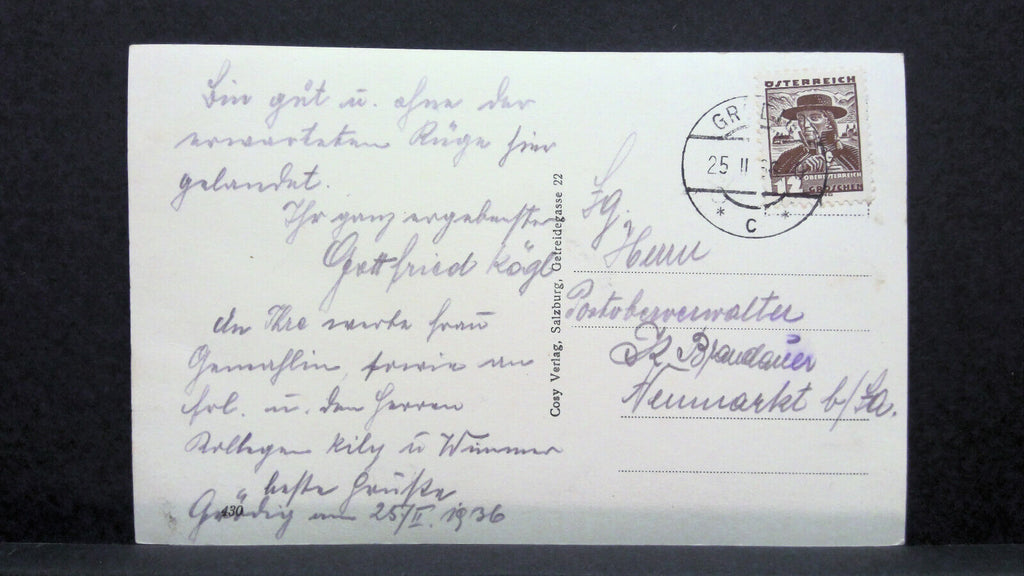 Bin gut u. ohne der
erwarteten Rüge hier
gelandet.
Ihr ganz ergebenster
Gottfried Kögl
An Ihre werte Frau
Gemahlin, sowie an
Frl. u. den Herren
Kollegen Kily u Wimmer
beste Grüße
Grödig am 25/II. 1936
430
Cosy Verlag, Salzburg, Getreidegasse 22
ÖSTERREICH
OBERÖSTERREICH
12 GROSCHEN
GR
25 II 36
* C *
Herrn
Postoberverwalter
Brandauer
Neumarkt b/Sa.